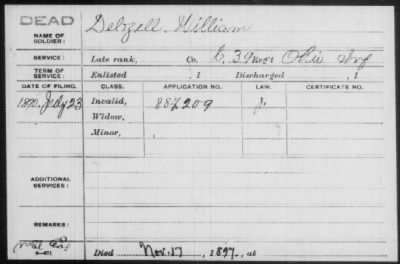 DEAD
NAME OF SOLDIER: Delzell, William
SERVICE: Late rank, Co. C. 39 Reg't Ohio Inf
TERM OF SERVICE: Enlisted , 1 Discharged , 1
DATE OF FILING. CLASS. APPLICATION NO. LAW. CERTIFICATE NO.
1890, July 23 Invalid, 887209
Widow,
Minor,
ADDITIONAL SERVICES:
REMARKS:
Died Nov. 17, 1897, at